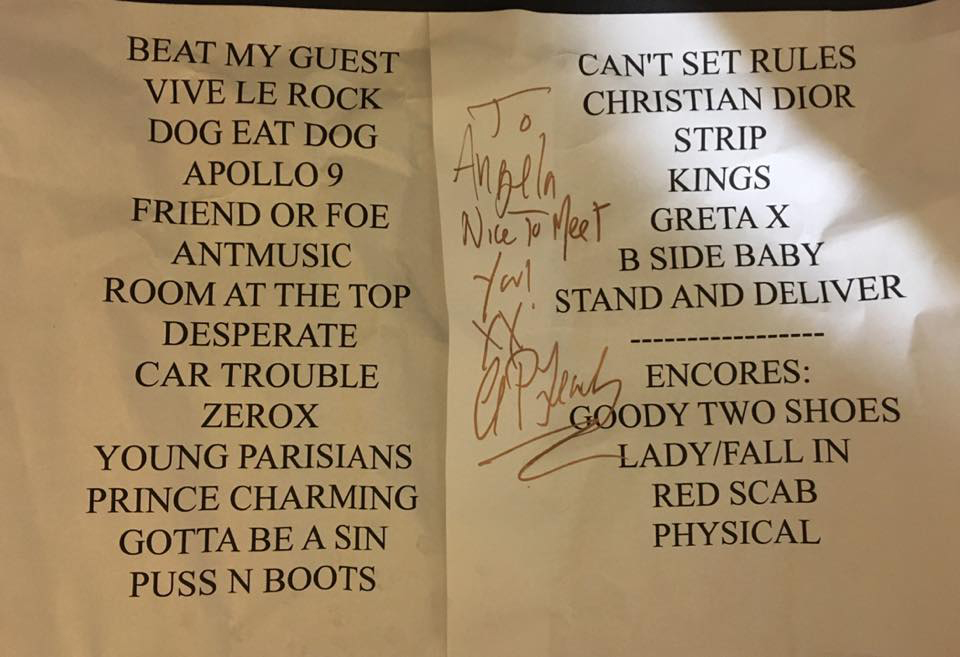 BEAT MY GUEST
VIVE LE ROCK
DOG EAT DOG
APOLLO 9
FRIEND OR FOE
ANTMUSIC
ROOM AT THE TOP
DESPERATE
CAR TROUBLE
ZEROX
YOUNG PARISIANS
PRINCE CHARMING
GOTTA BE A SIN
PUSS N BOOTS
To
Angela
Nice To Meet
You!
XX
CAN'T SET RULES
CHRISTIAN DIOR
STRIP
KINGS
GRETA X
B SIDE BABY
STAND AND DELIVER
------------------
ENCORES:
GOODY TWO SHOES
LADY/FALL IN
RED SCAB
PHYSICAL